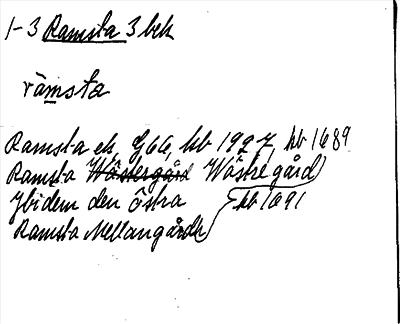 1-3 Ramsta 3 bek
ramsta
Ramsta ek, G66, kb 1927, kb 1689
Ramsta Wästergård Wästregård
Ibidem den Östra kb 1691
Ramsta Mellangårdh